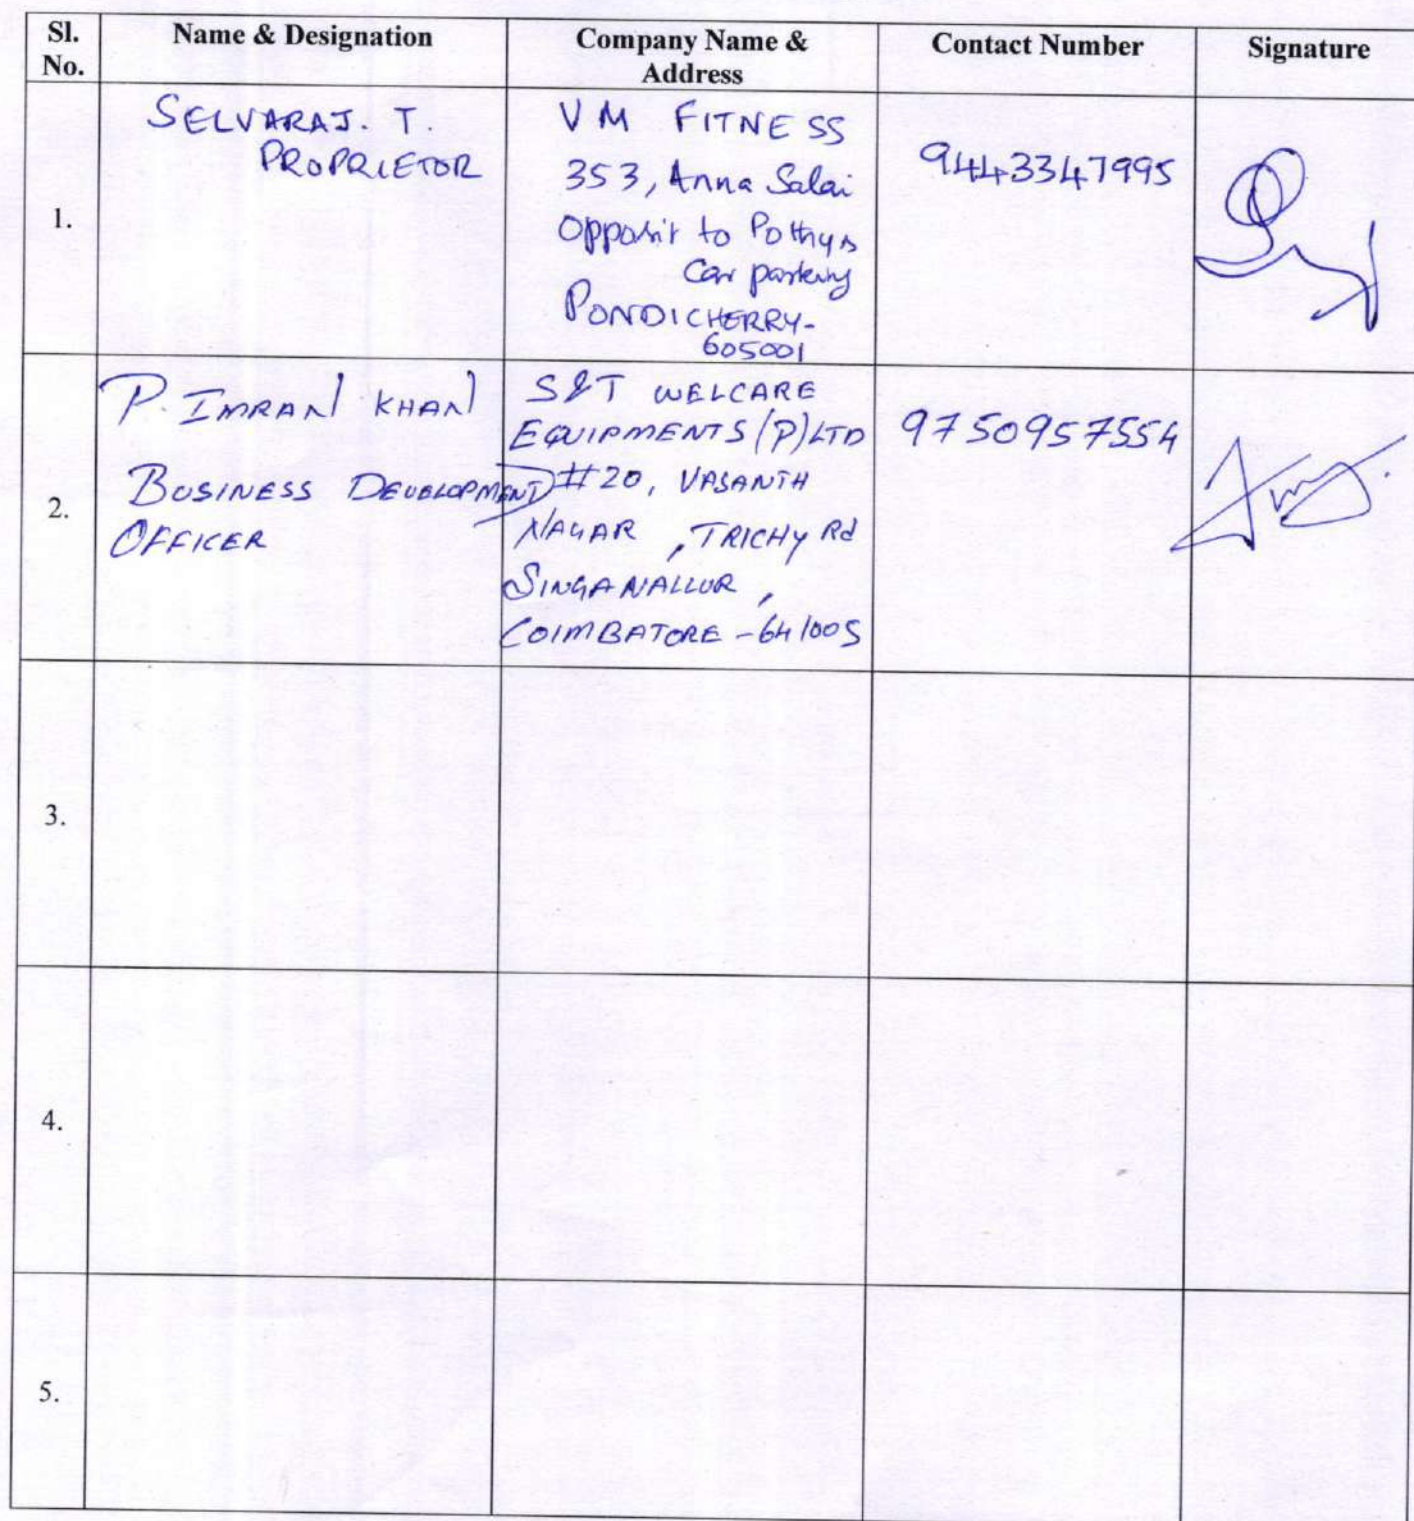 Sl. No.
Name & Designation
Company Name & Address
Contact Number
Signature
1.
SELVARAJ. T.
PROPRIETOR
VM FITNESS
353, Anna Salai
Opposit to Pothys
Car parking
PONDICHERRY-
605001
9443347995
2.
P. IMRAN KHAN
BUSINESS DEVELOPMENT
OFFICER
S&T WELCARE
EQUIPMENTS (P) LTD
#20, VASANTH
NAGAR, TRICHY Rd
SINGANALLUR,
COIMBATORE - 641005
9750957554
3.
4.
5.